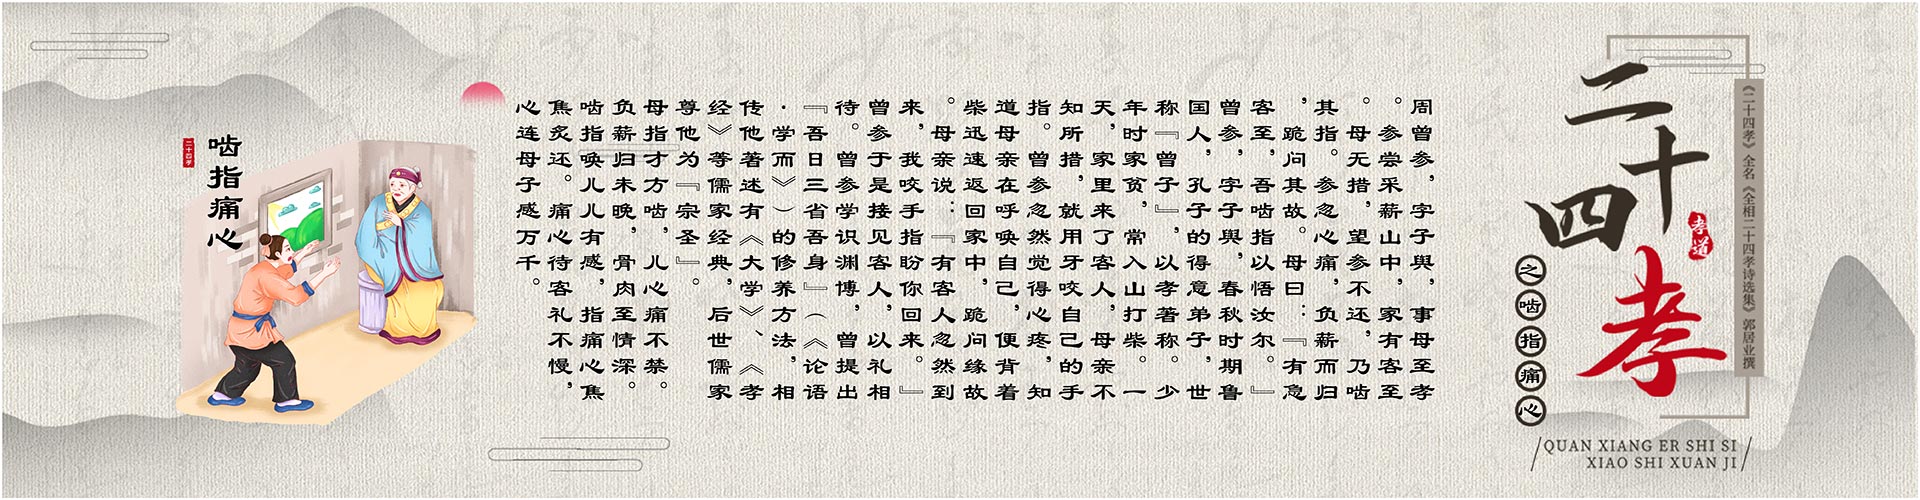 二十四孝
孝道
《二十四孝》全名《全相二十四孝诗选集》郭居业撰
之啮指痛心
QUAN XIANG ER SHI SI
XIAO SHI XUAN JI
周曾参，字子舆，事母至孝
。参尝采薪山中，家有客至
。母无措，望参不还，乃啮
其指。参忽心痛，负薪而归
，跪问其故。母曰：『有急
客至，吾啮指以悟汝尔。』
曾参，字子舆，春秋时期鲁
国人，孔子的得意弟子，世
称『曾子』，以孝著称。少
年时家贫，常入山打柴。一
天，家里来了客人，母亲不
知所措，就用牙咬自己的手
指。曾参忽然觉得心疼，知
道母亲在呼唤自己，便背着
柴迅速返回家中，跪问缘故
。母亲说：『有客人忽然到
来，我咬手指盼你回来。』
曾参于是接见客人，以礼相
待。曾参学识渊博，曾提出
『吾日三省吾身』（《论语
·学而》）的修养方法，相
传他著述有《大学》、《孝
经》等儒家经典，后世儒家
尊他为『宗圣』。
母指才方啮，儿心痛不禁。
负薪归未晚，骨肉至情深。
啮指唤儿儿有感，指痛心焦
焦炙还。痛心待客礼不慢，
心连母子感万千。
啮指痛心
二十四孝